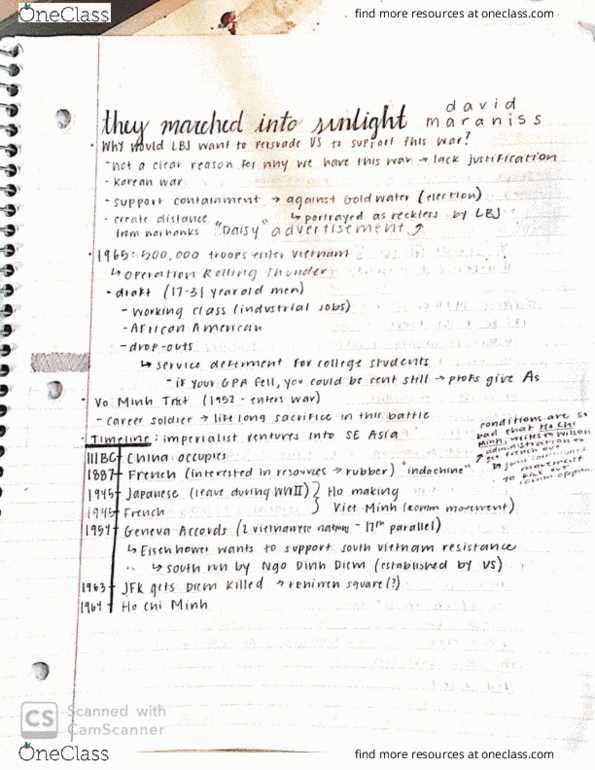 OneClass
find more resources at oneclass.com
they marched into sunlight david maraniss
• Why would LBJ want to persuade US to support this war?
- not a clear reason for why we have this war → lack justification
- Korean war
- support containment → against Goldwater (election)
- create distance from warhawks "Daisy" advertisement ↳ portrayed as reckless by LBJ
• 1965: 500,000 troops enter Vietnam
↳ Operation Rolling Thunder
• draft (17-31 year old men)
- working class (industrial jobs)
- African American
- drop-outs
↳ service deferment for college students
- if your GPA fell, you could be sent still → profs give As
• Vo Minh Triet (1952 - enters war)
- career soldier → life long sacrifice in this battle
• Timeline: imperialist ventures into SE Asia
conditions are so
bad that Ho Chi
Minh writes to Wilson
administration to
get French out
↳ join communist
movement
to kick out
111BC China occupies
1887 French (interested in resources → rubber) "indochine"
1945 Japanese (leave during WWII) } Ho making
1945 French } Viet-Minh (comm movement)
1954 Geneva Accords (2 vietnamese nations - 17th parallel)
↳ Eisenhower wants to support south Vietnam resistance
" ↳ south run by Ngo Dinh Diem (established by US)
1963 JFK gets Diem killed → square(?)
1964 Ho Chi Minh
CS Scanned with
CamScanner
OneClass
find more resources at oneclass.com